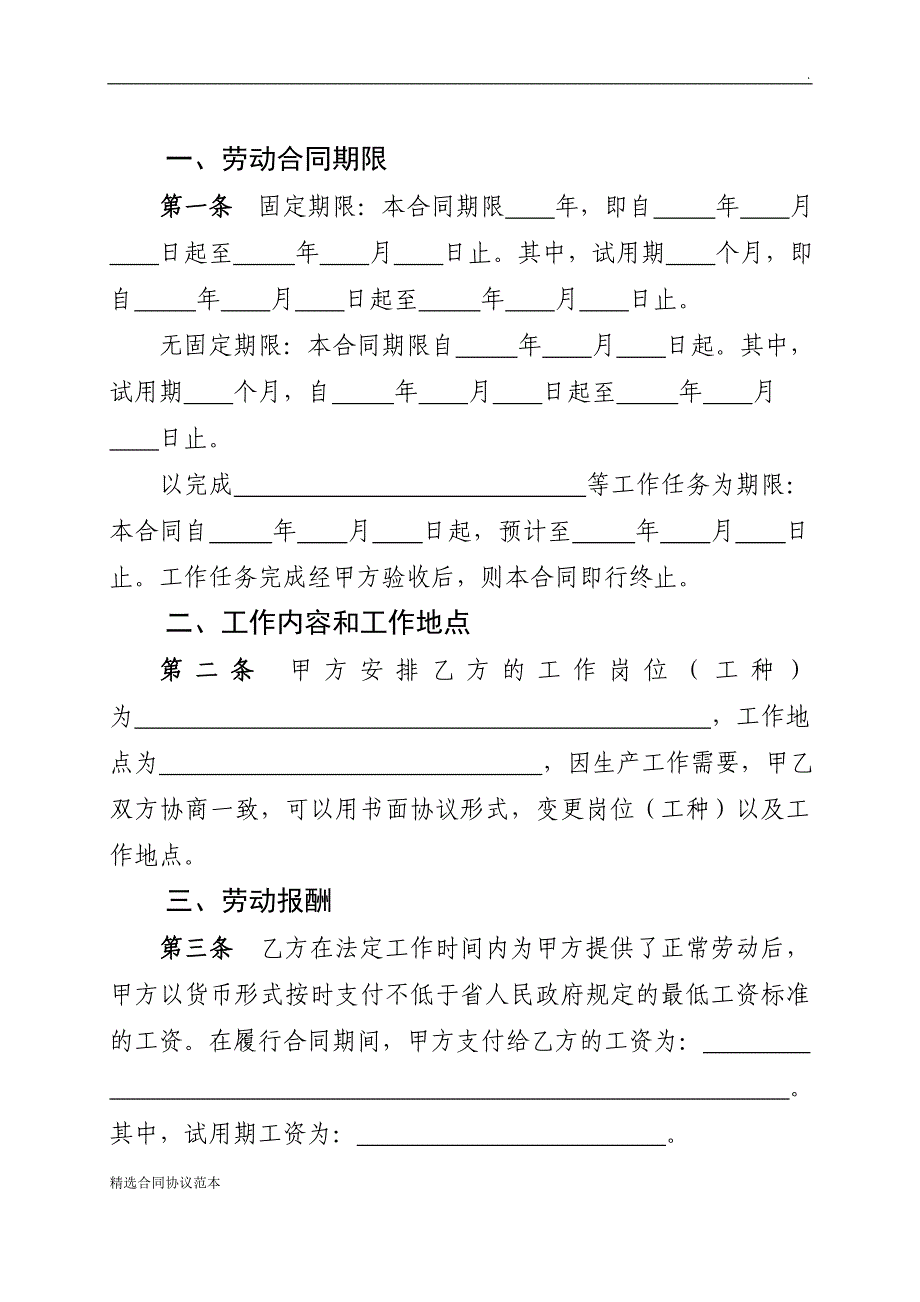 一、劳动合同期限
第一条 固定期限：本合同期限____年，即自_____年____月
____日起至_____年____月____日止。其中，试用期____个月，即
自_____年____月____日起至_____年____月____日止。
无固定期限：本合同期限自_____年____月____日起。其中，
试用期____个月，自_____年____月____日起至_____年____月
____日止。
以完成____________________________等工作任务为期限：
本合同自_____年____月____日起，预计至_____年____月____日
止。工作任务完成经甲方验收后，则本合同即行终止。
二、工作内容和工作地点
第二条 甲方安排乙方的工作岗位（工种）
为______________________________________________，工作地
点为_______________________________，因生产工作需要，甲乙
双方协商一致，可以用书面协议形式，变更岗位（工种）以及工
作地点。
三、劳动报酬
第三条 乙方在法定工作时间内为甲方提供了正常劳动后，
甲方以货币形式按时支付不低于省人民政府规定的最低工资标准
的工资。在履行合同期间，甲方支付给乙方的工资为：_________
_______________________________________________________。
其中，试用期工资为：_________________________。
精选合同协议范本